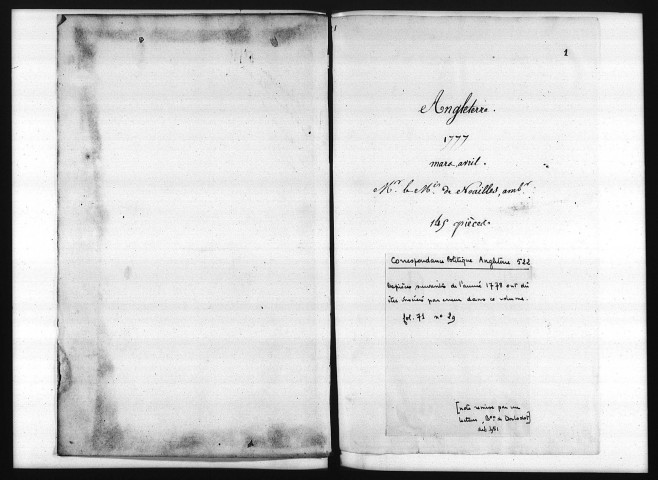 1
Angleterre.
1777
mars avril.
Mr. le Mis. de Noailles, ambr.
145 pièces.
Correspondance Politique Angleterre 522
pièces suivantes de l'année 1778 ont dû
être insérées par erreur dans ce volume.
fol. 71 nº 29
[note remise par un
lecteur, Bon de